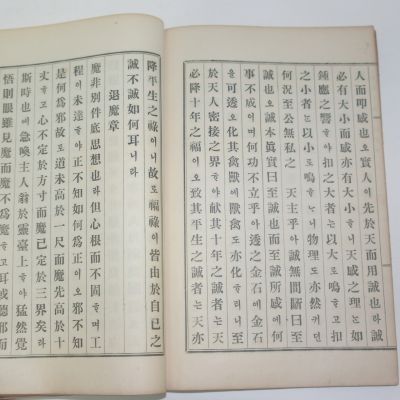 人而叩感也오實人이先於天而用誠也라誠
必有大小而感亦有大小ᄒᆞ니天感之理는如
鍾應之響ᄒᆞ야扣之大者는以大로鳴ᄒᆞ고扣
之小者는以小로鳴ᄒᆞᄂᆞ니物理도亦然커던
何況至公無私之 天主乎아誠無間斷曰至
誠也오誠本眞實曰誠也而至誠所感에何
事不成이며何功不立乎아透之金石에金石
을可透오化其禽獸에獸禽도亦化ᄒᆞᄂᆞ니至
於天人密接之界ᄒᆞ야獻其十年之誠者는天
必降十年之福이오致其平生之誠者는天亦
降平生之祿이니故로福祿이皆由於自己之
誠不誠如何耳니라
退魔章
魔非別件底思想也라但心根而不固ᄒᆞ며工
程이未達ᄒᆞ야正不知如何爲正이오邪不知
是何爲邪故로道未高於一尺而魔先高於十
丈ᄒᆞ고心不定於方寸而魔已定於三界矣라
斯時也에急喚主人翁於靈臺上ᄒᆞ야猛然覺
悟則眼雖見魔而魔不爲魔ᄒᆞ고耳或聽邪而